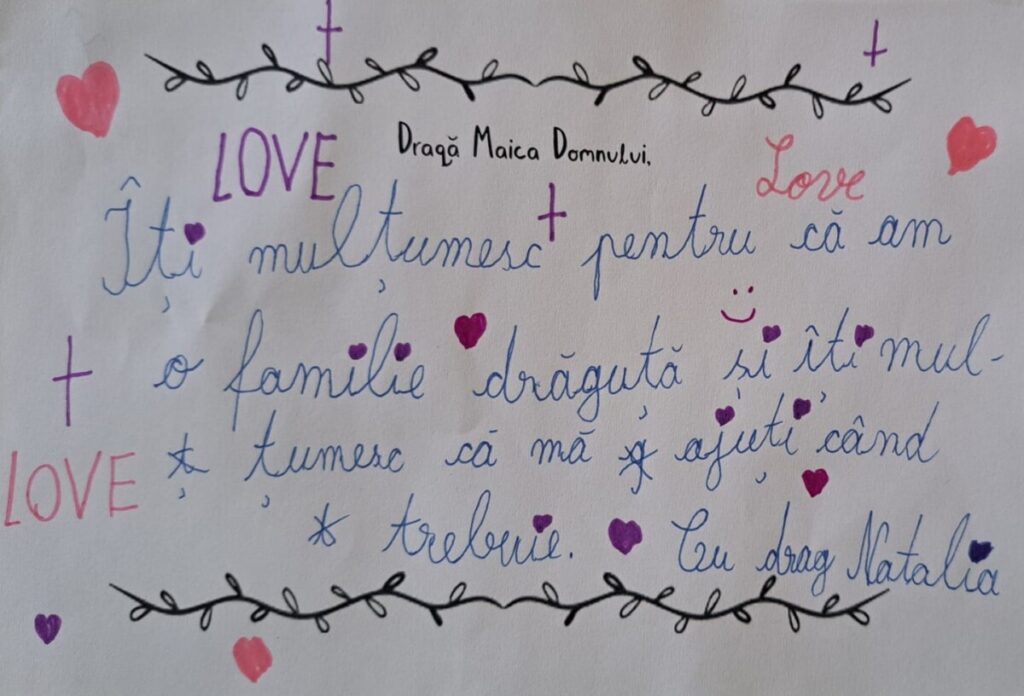 LOVE Dragă Maica Domnului, Love
Îți mulțumesc pentru că am
o familie drăguță și îți mul-
LOVE țumesc că mă ajuți când
trebuie. Cu drag Natalia